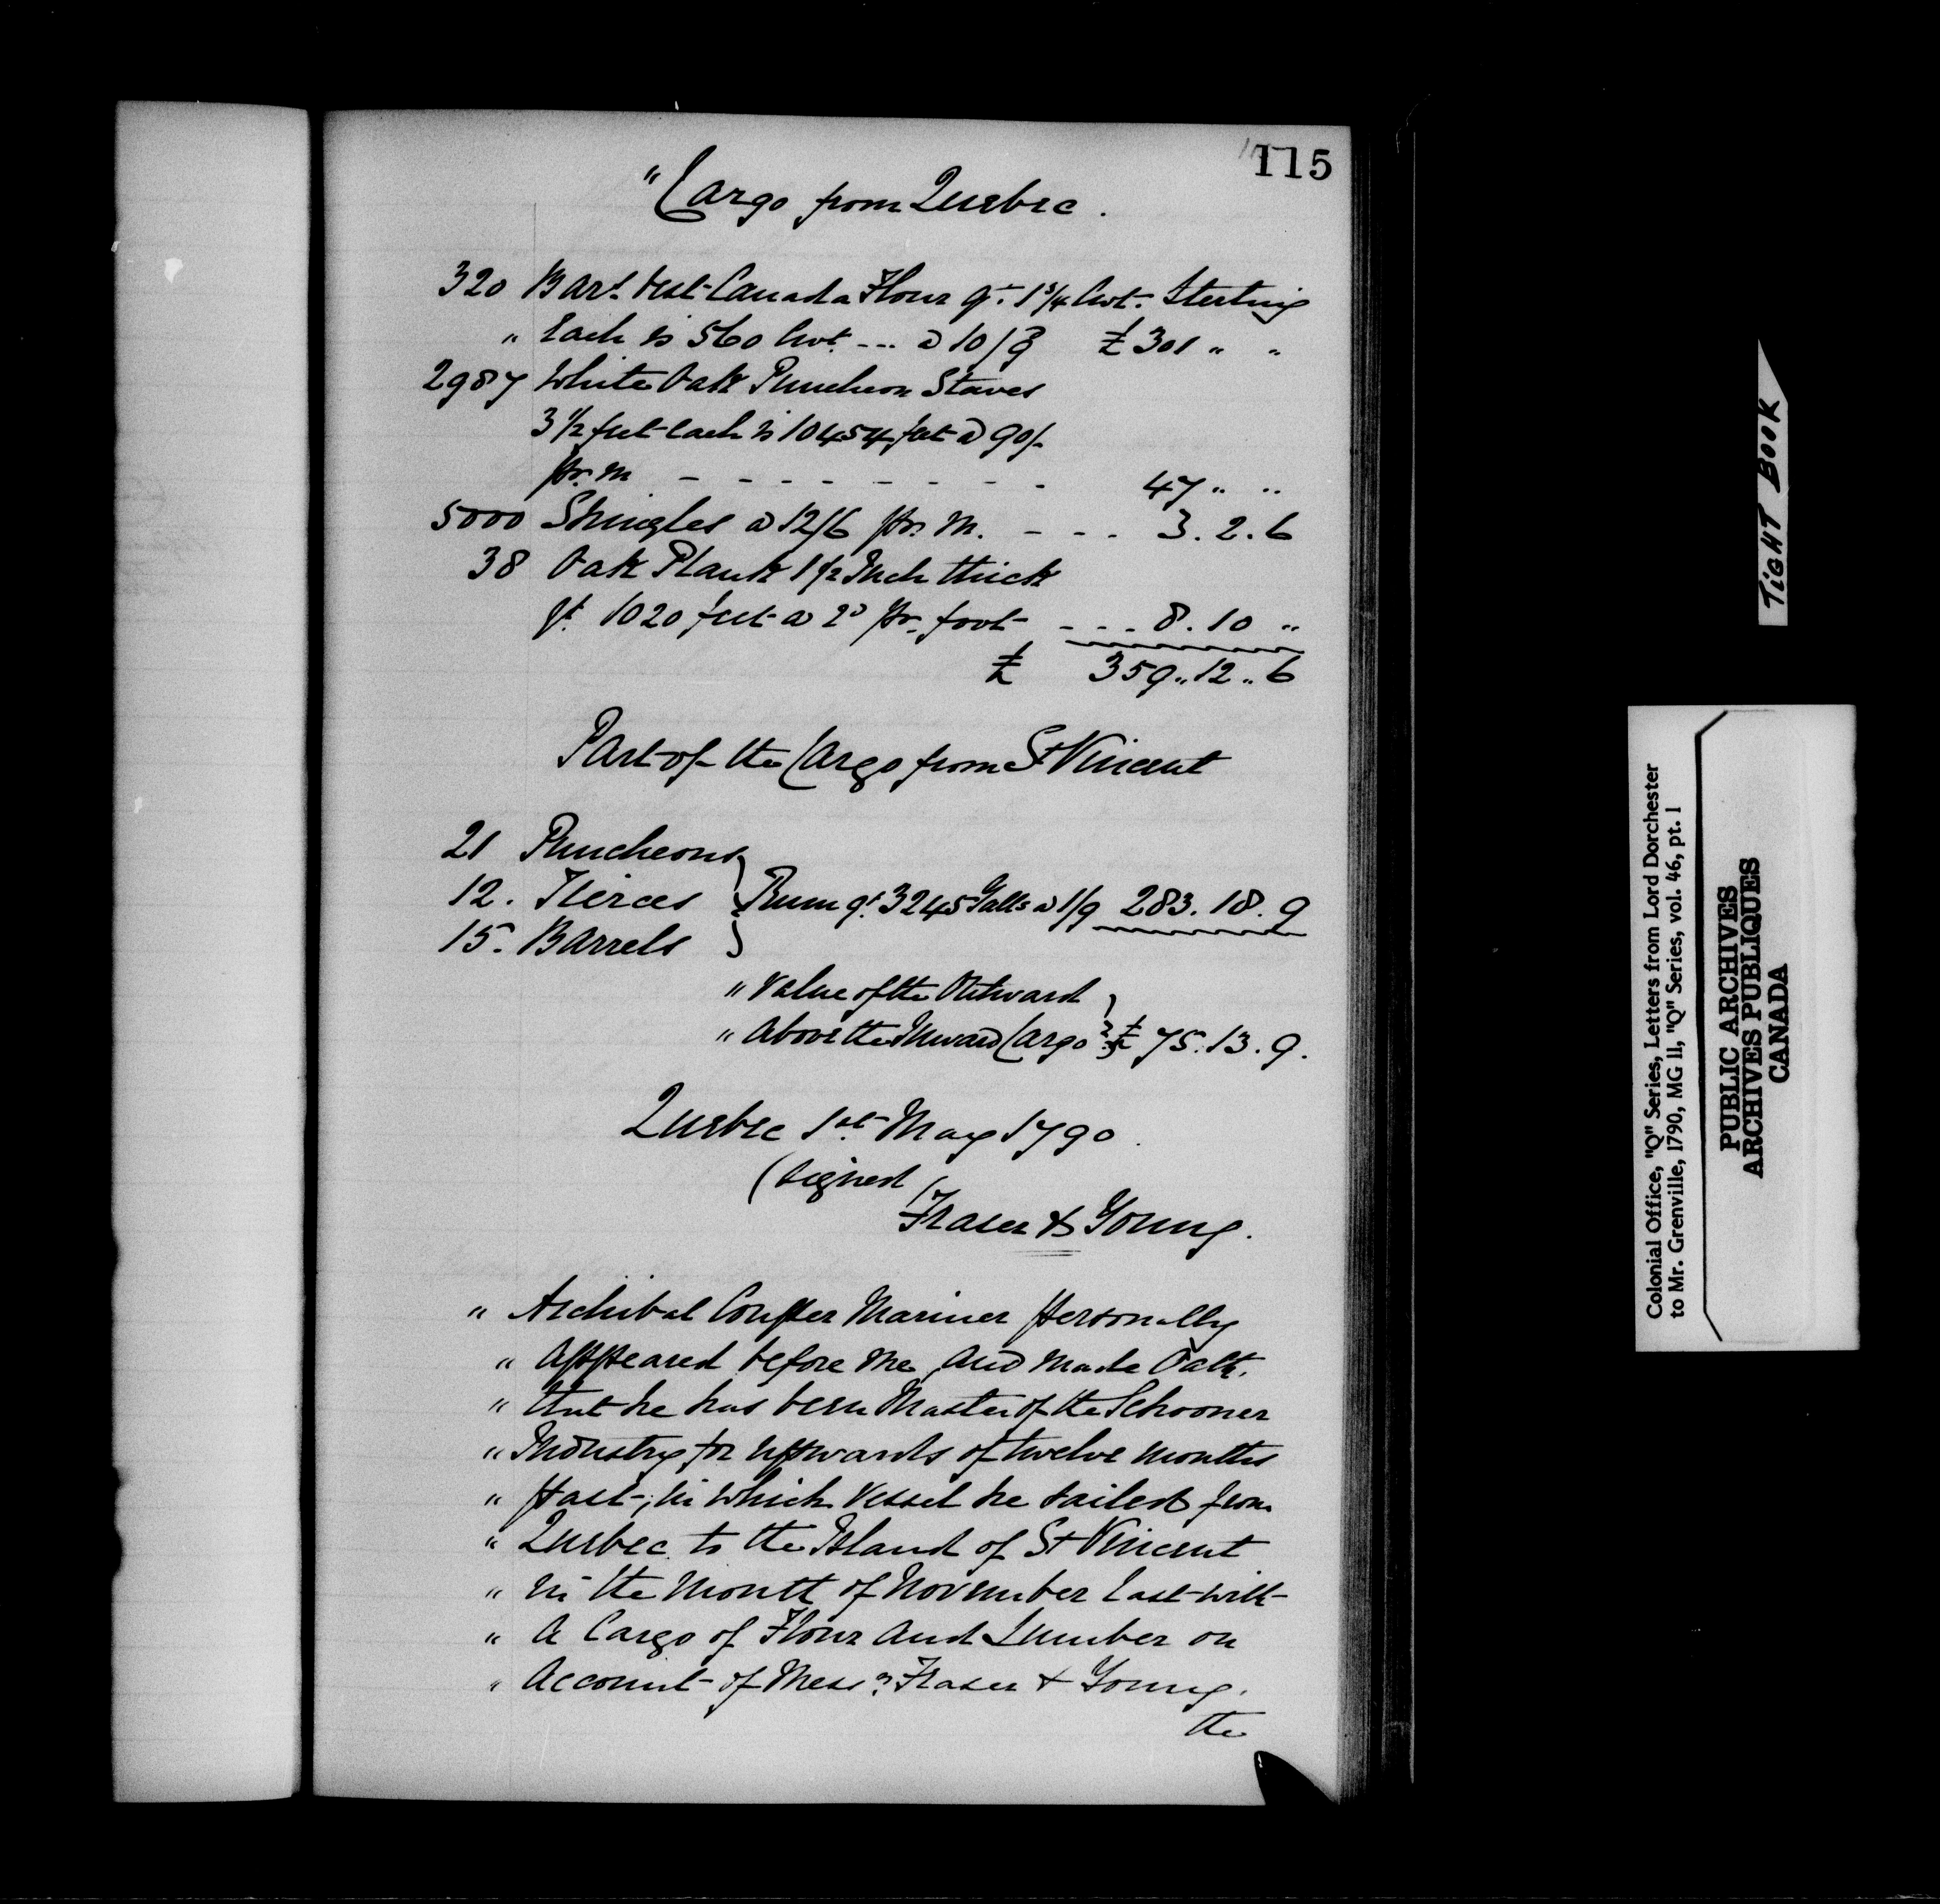 115
"Cargo from Quebec.
320 Barˢ best Canada Flour qᵗ. 1¾ Cwt. Sterling
" Each is 560 Cwt. --- @ 10/9 £ 301 " "
2987 White Oak Puncheon Staves
3½ feet each is 10454 feet @ 90/-
pr. M - - - - - - - - 47 " "
5000 Shingles @ 12/6 pr. M. - - - 3.2.6
38 Oak Plank 1½ Inch thick
qt. 1020 feet @ 2ᴰ pr. foot - - - 8.10 "
£ 359 " 12 " 6
Part of the Cargo from St Vincent
21 Puncheons
12. Tierces } Rum qᵗ. 3245 Galls @ 1/9 283.18.9
15. Barrels
" Value of the Outward
" Above the Inward Cargo } £ 75.13.9.
Quebec 1st May 1790.
(signed
Fraser & Young.
" Archibal Couper Mariner personally
" Appeared before me and made Oath.
" that he has been Master of the Schooner
" Industry for upwards of twelve months
" past, in which vessel he sailed from
" Quebec to the Island of St Vincent
" in the month of November last with
" A Cargo of Flour and Lumber on
" Account of Messrs. Fraser & Young.
the
TIGHT BOOK
Colonial Office, "Q" Series, Letters from Lord Dorchester
to Mr. Grenville, 1790, MG 11, "Q" Series, vol. 46, pt. 1
PUBLIC ARCHIVES
ARCHIVES PUBLIQUES
CANADA